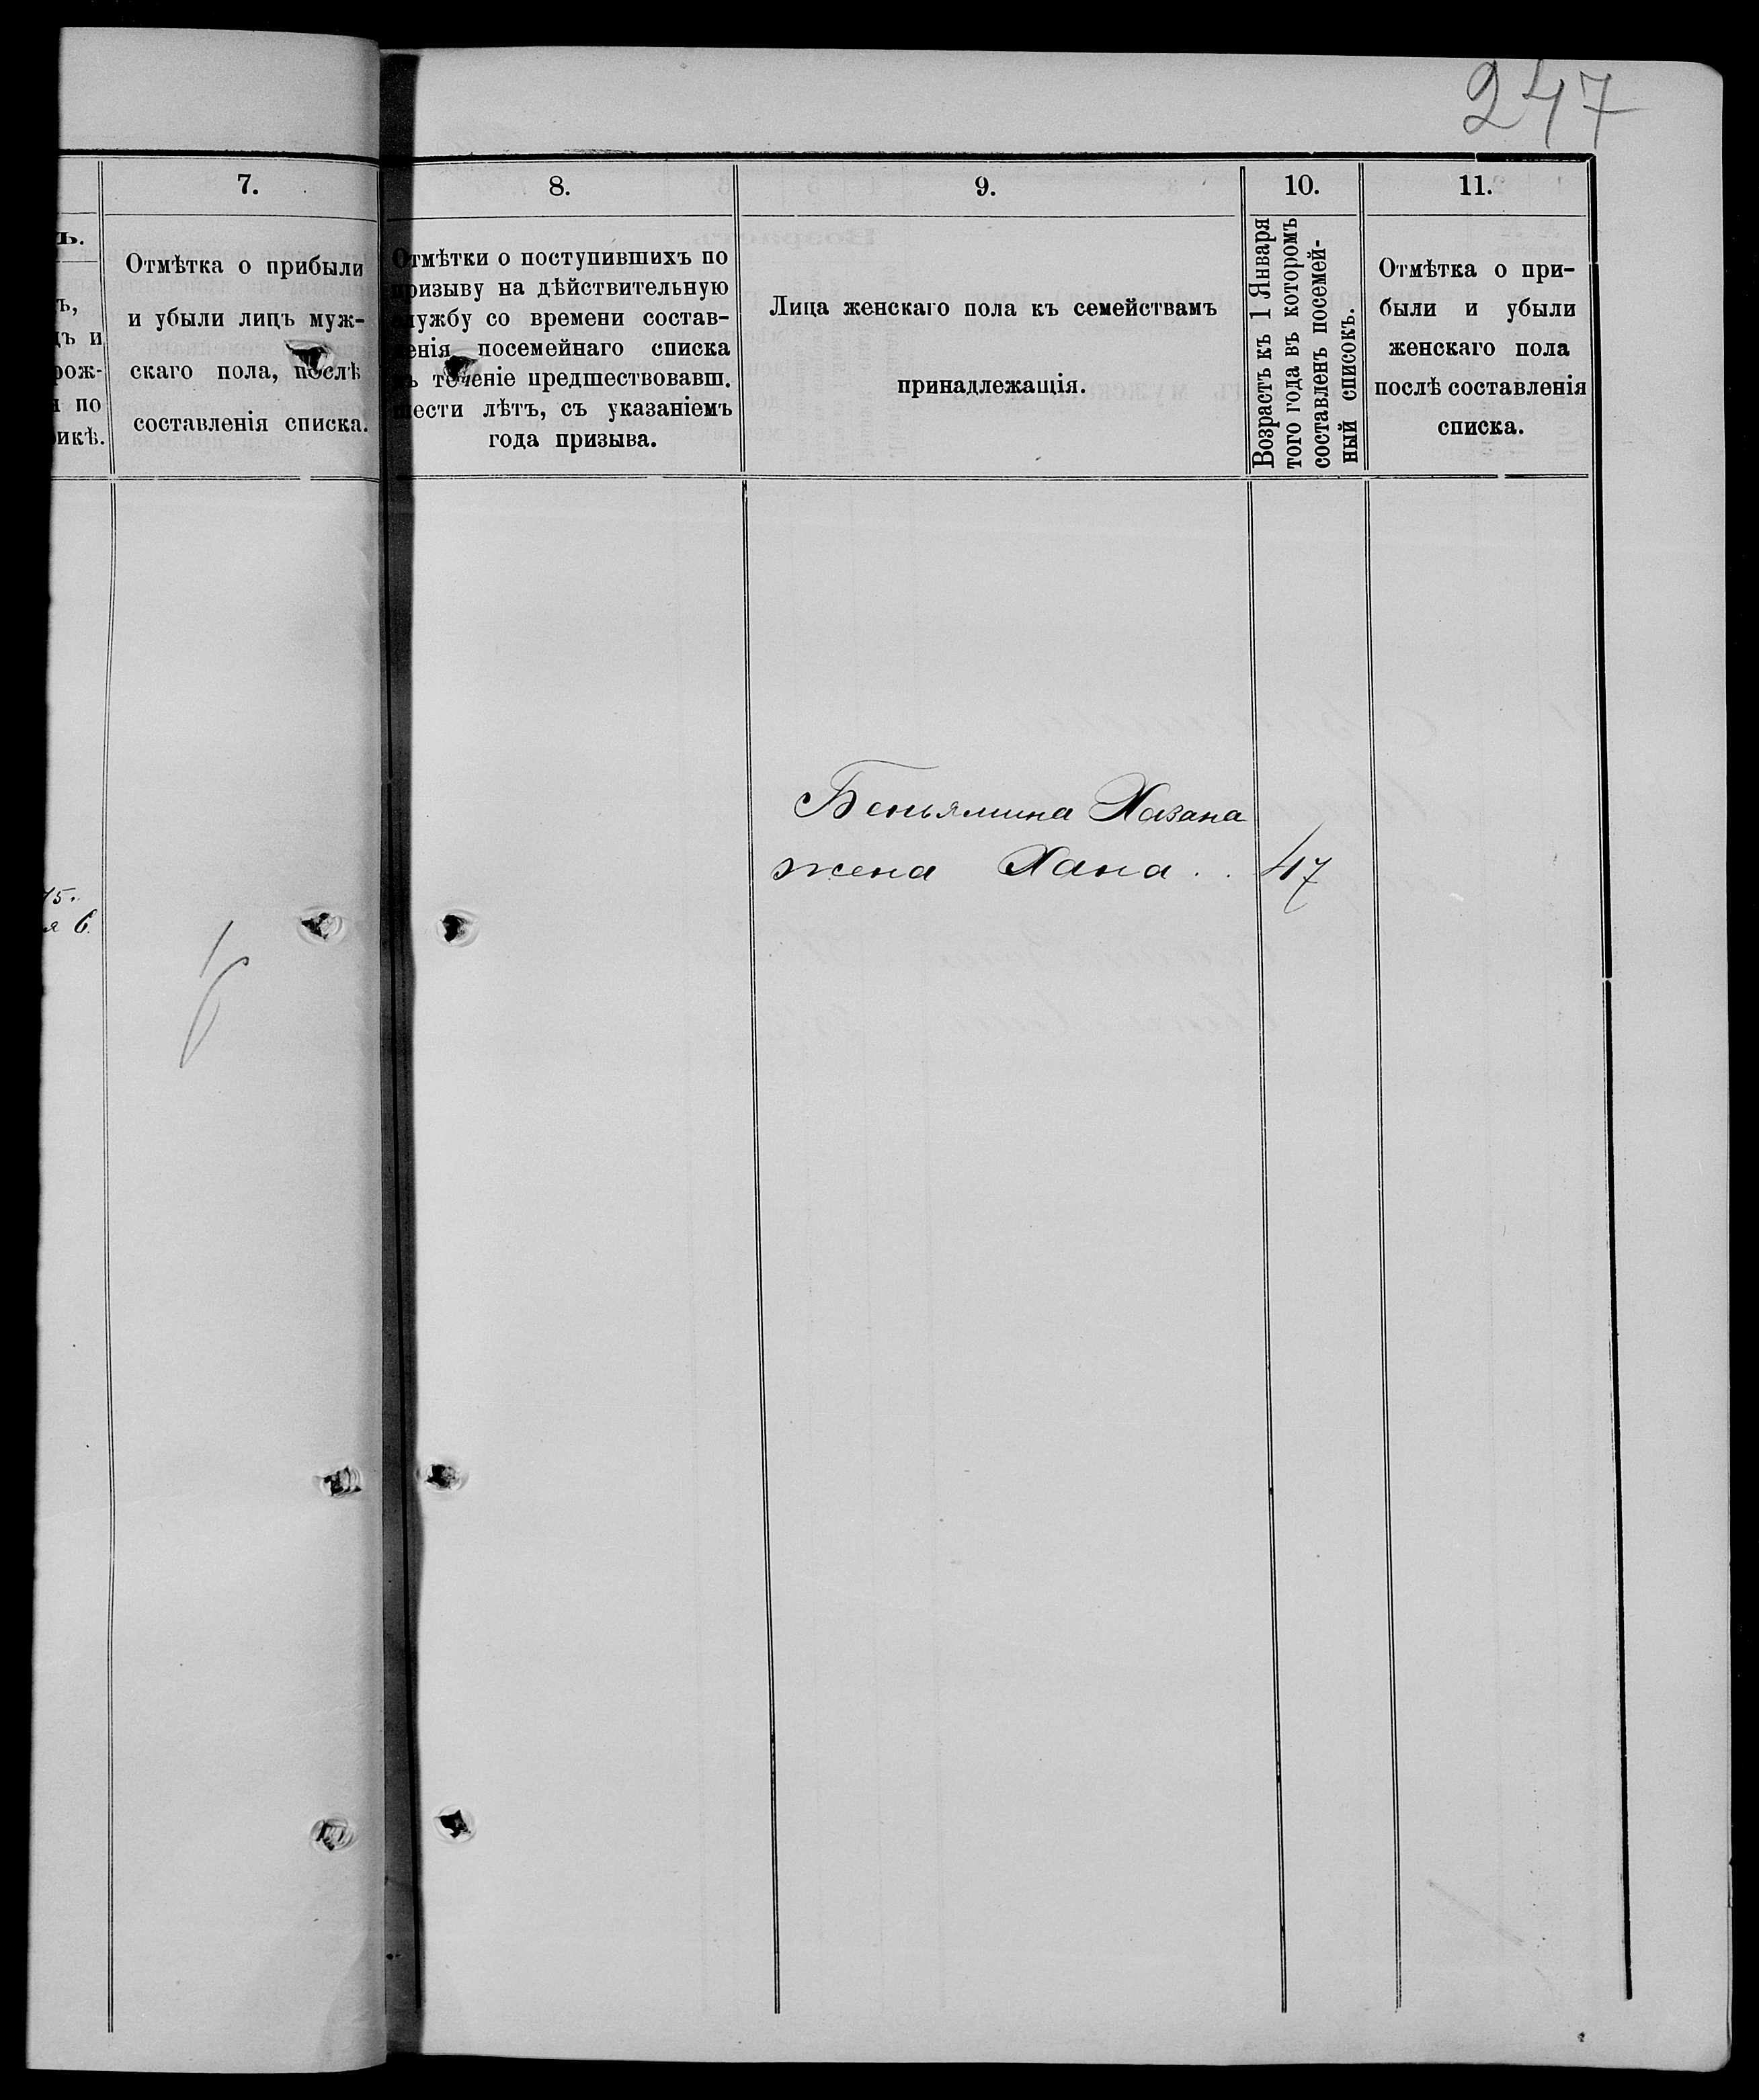 247
7.
8.
9.
10.
11.
ъ.
ъ,
ъ и
рож-
по
рикѣ.
Отмѣтка о прибыли
и убыли лицъ муж-
скаго пола, послѣ
составленія списка.
Отмѣтки о поступившихъ по
призыву на дѣйствительную
службу со времени состав-
ленія посемейнаго списка
въ теченіе предшествовавш.
шести лѣтъ, съ указаніемъ
года призыва.
Лица женскаго пола къ семействамъ
принадлежащія.
Возрастъ къ 1 Января
того года въ которомъ
составленъ посемей-
ный списокъ.
Отмѣтка о при-
были и убыли
женскаго пола
послѣ составленія
списка.
Беньямина Хазана
жена Хана . . 47
75.
я 6.